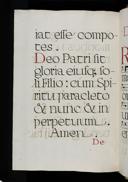 iat esse compo-
tes.
Deo Patri sit
gloria eiusq; so-
li Filio: cum Spi-
ritu paracleto
& nunc & in
perpetuum.
Amen.
De